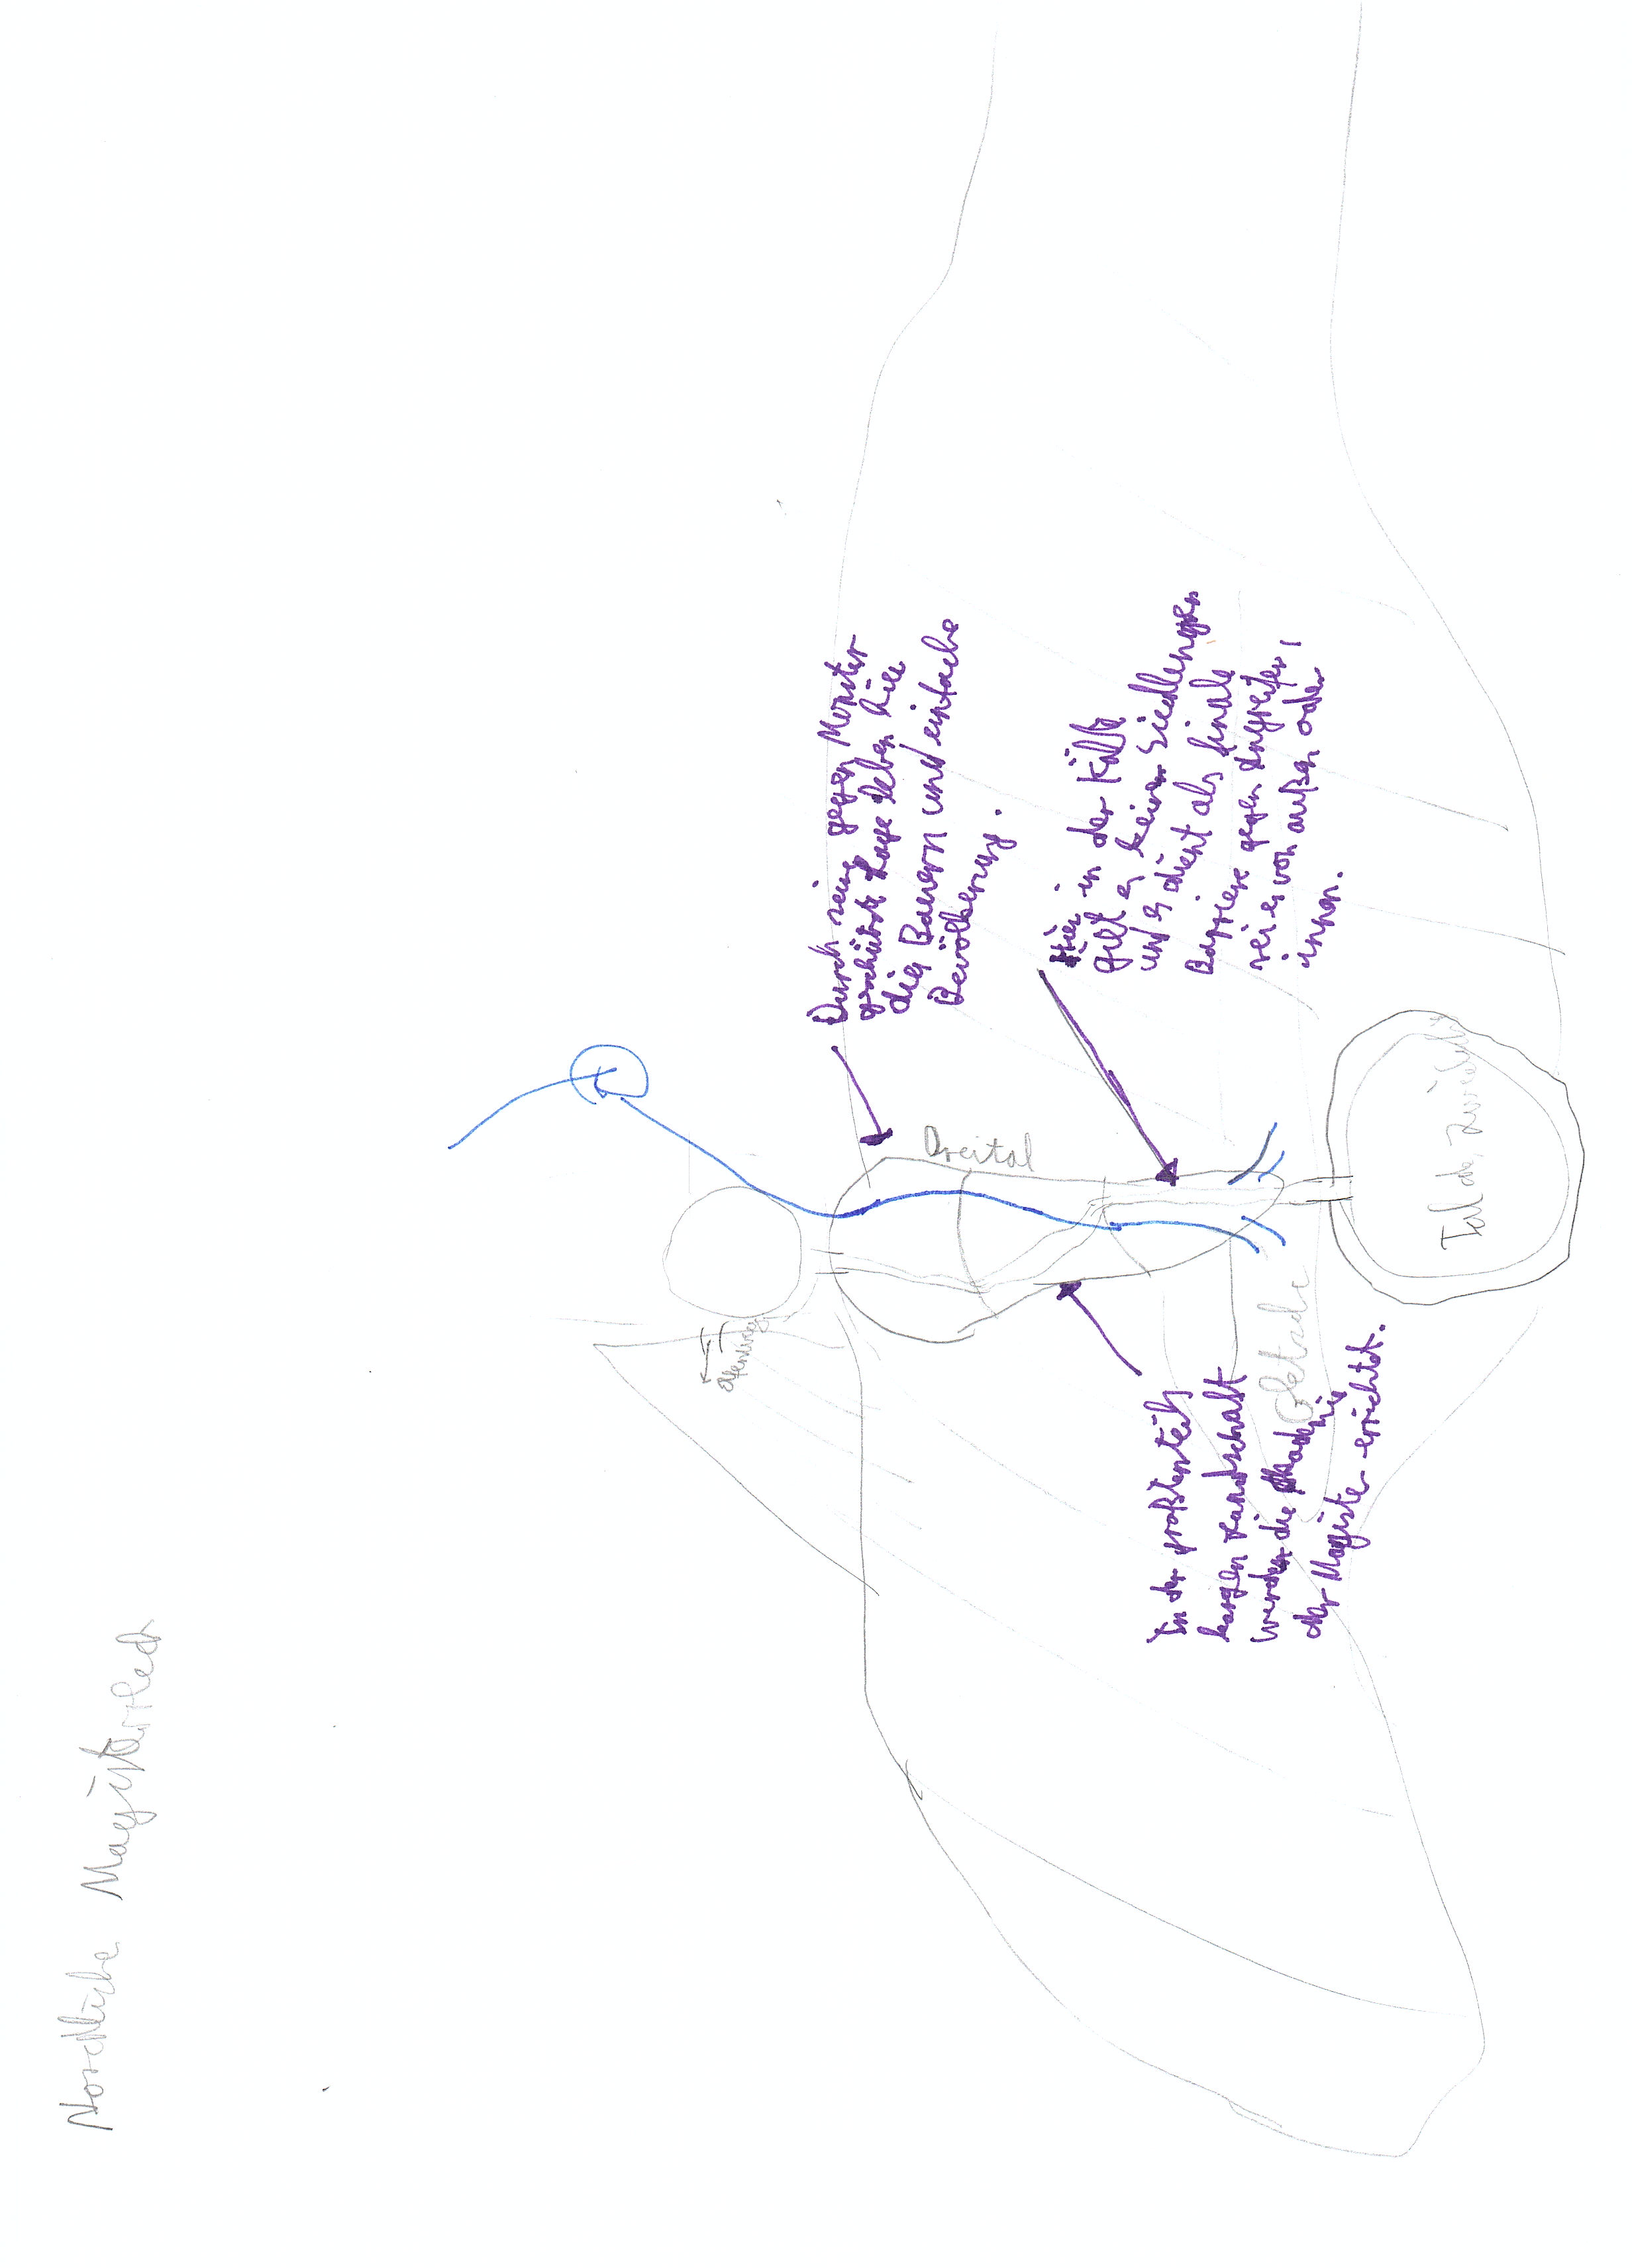 Nordliche
Durch seine gegen Monster
geschützte Lage leben hier
die Bauern und einfache
Bevölkerung.
Dreital
Hier in der Kälte
gibt es keine Siedlungen
und es dient als finale
Barriere gegen Angreifer,
sei es von außen oder
innen.
In der großtenteils
kargen Landschaft
werden die Akademie
der Magister errichtet.
Tal der